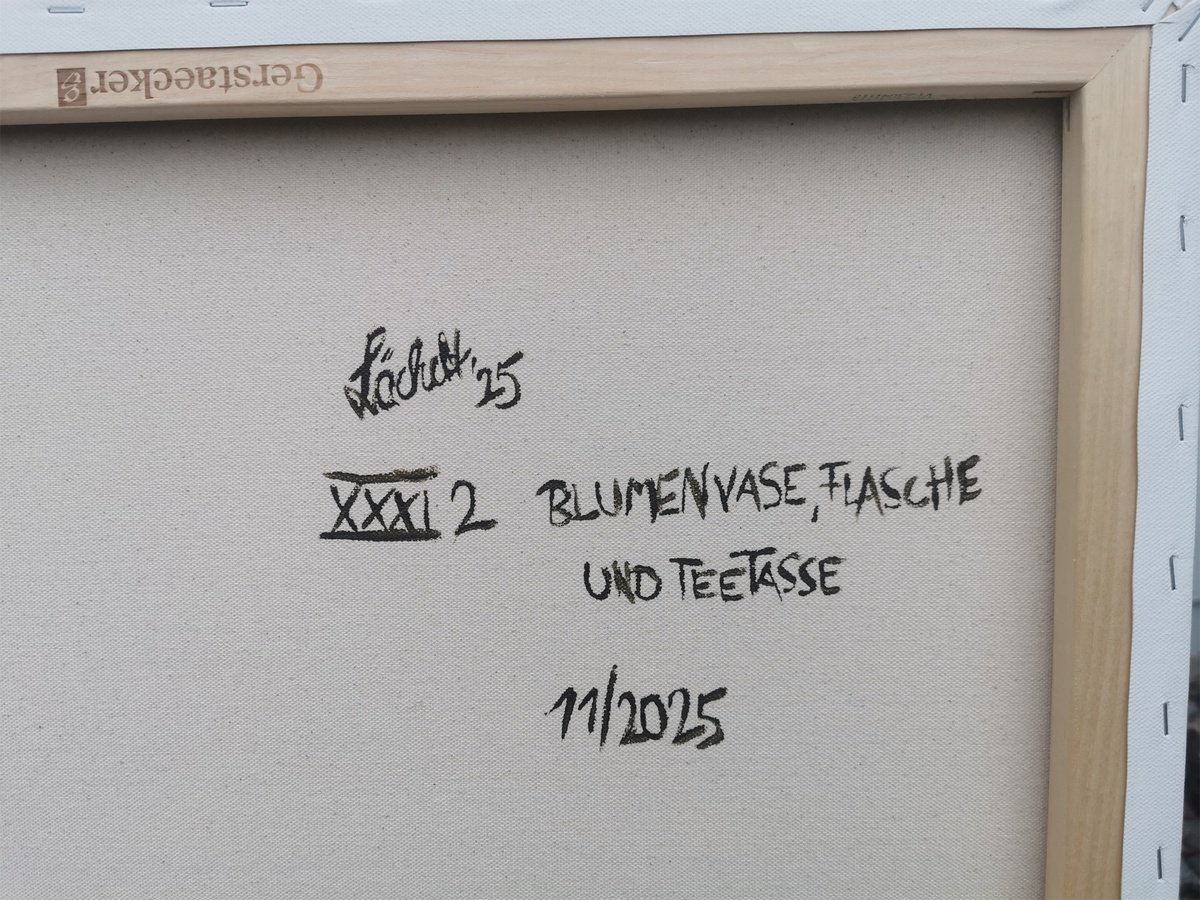 Gerstaecker
'25
XXXI 2 BLUMENVASE, FLASCHE
UND TEETASSE
11/2025